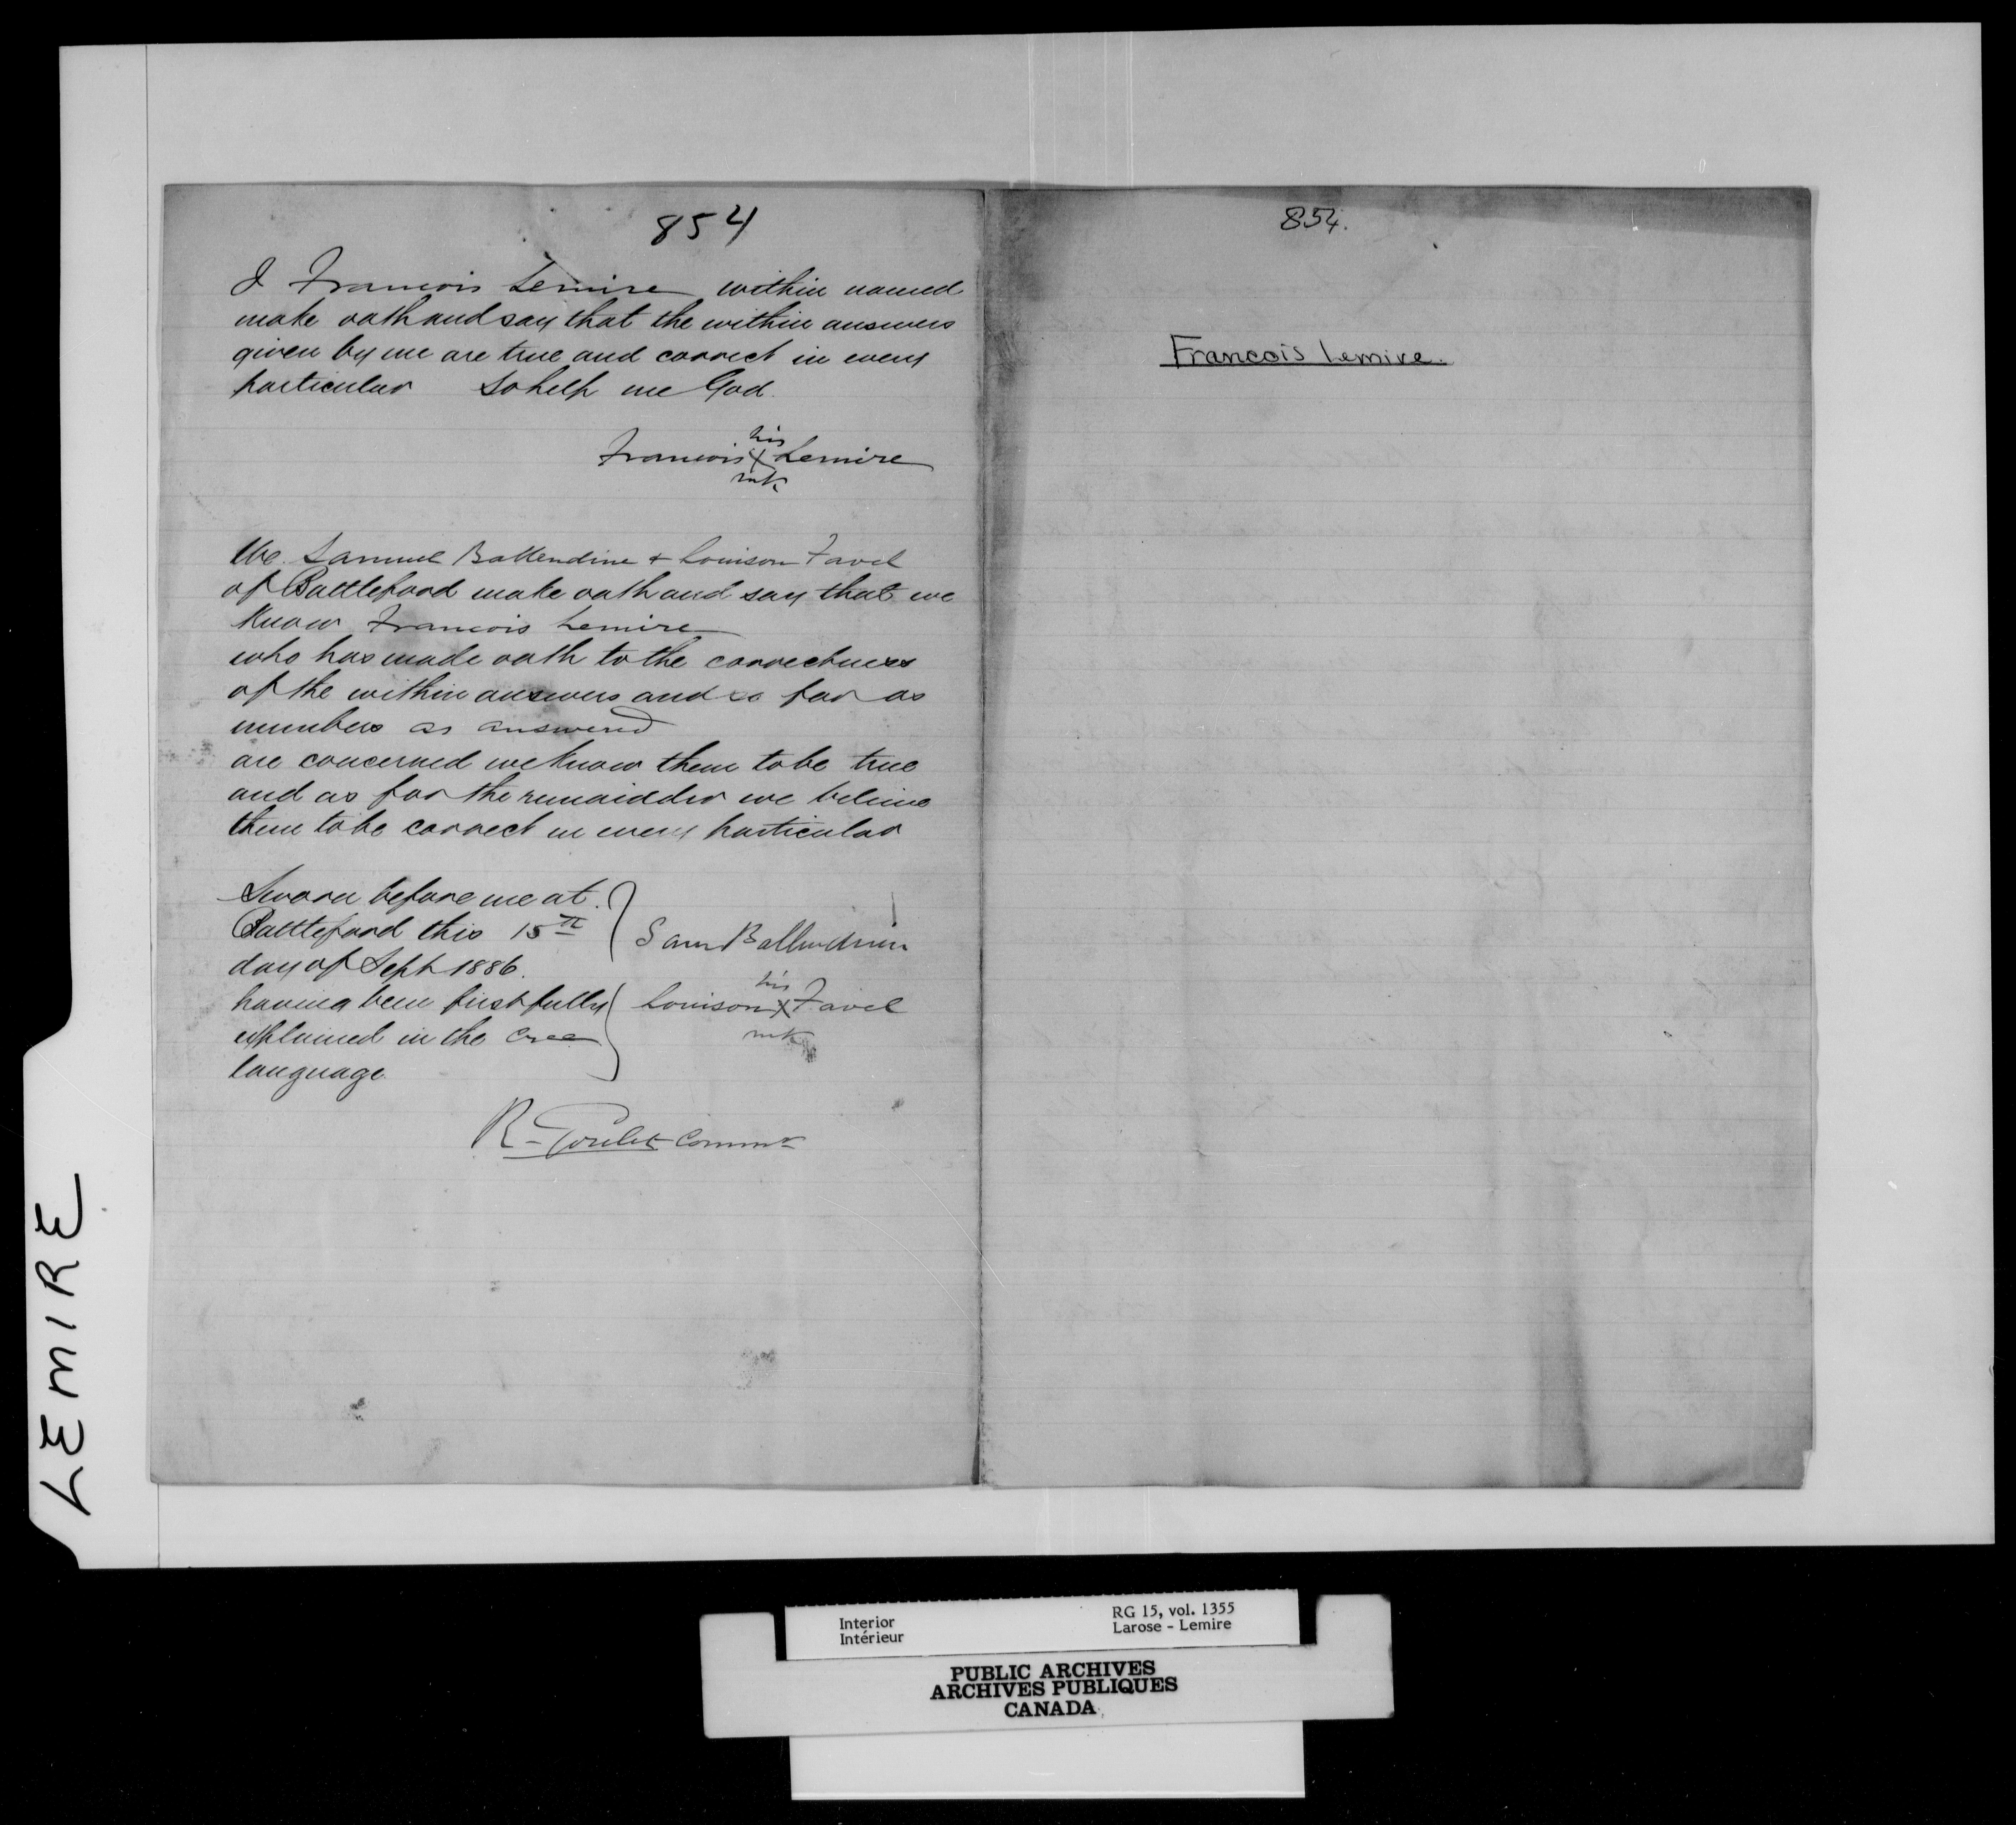 854
I Francois Lemire within named
make oath and say that the within answers
given by me are true and correct in every
particular So help me God.
his
Francois X Lemire
mk
We Samuel Ballendine + Louison Favel
of Battleford make oath and say that we
Know Francois Lemire
who has made oath to the correctness
of the within answers and so far as
numbers as answered
are concerned we know them to be true
and as for the remaidder we believe
them to be correct in every particular
Sworn before me at
Battleford this 15th
day of Sept 1886.
having been first fully
explained in the Cree
language.
Sam Ballendine
his
Louison X Favel
mk
R. Goulet Commr
854.
Francois Lemire.
LEMIRE
Interior
Intérieur
RG 15, vol. 1355
Larose - Lemire
PUBLIC ARCHIVES
ARCHIVES PUBLIQUES
CANADA